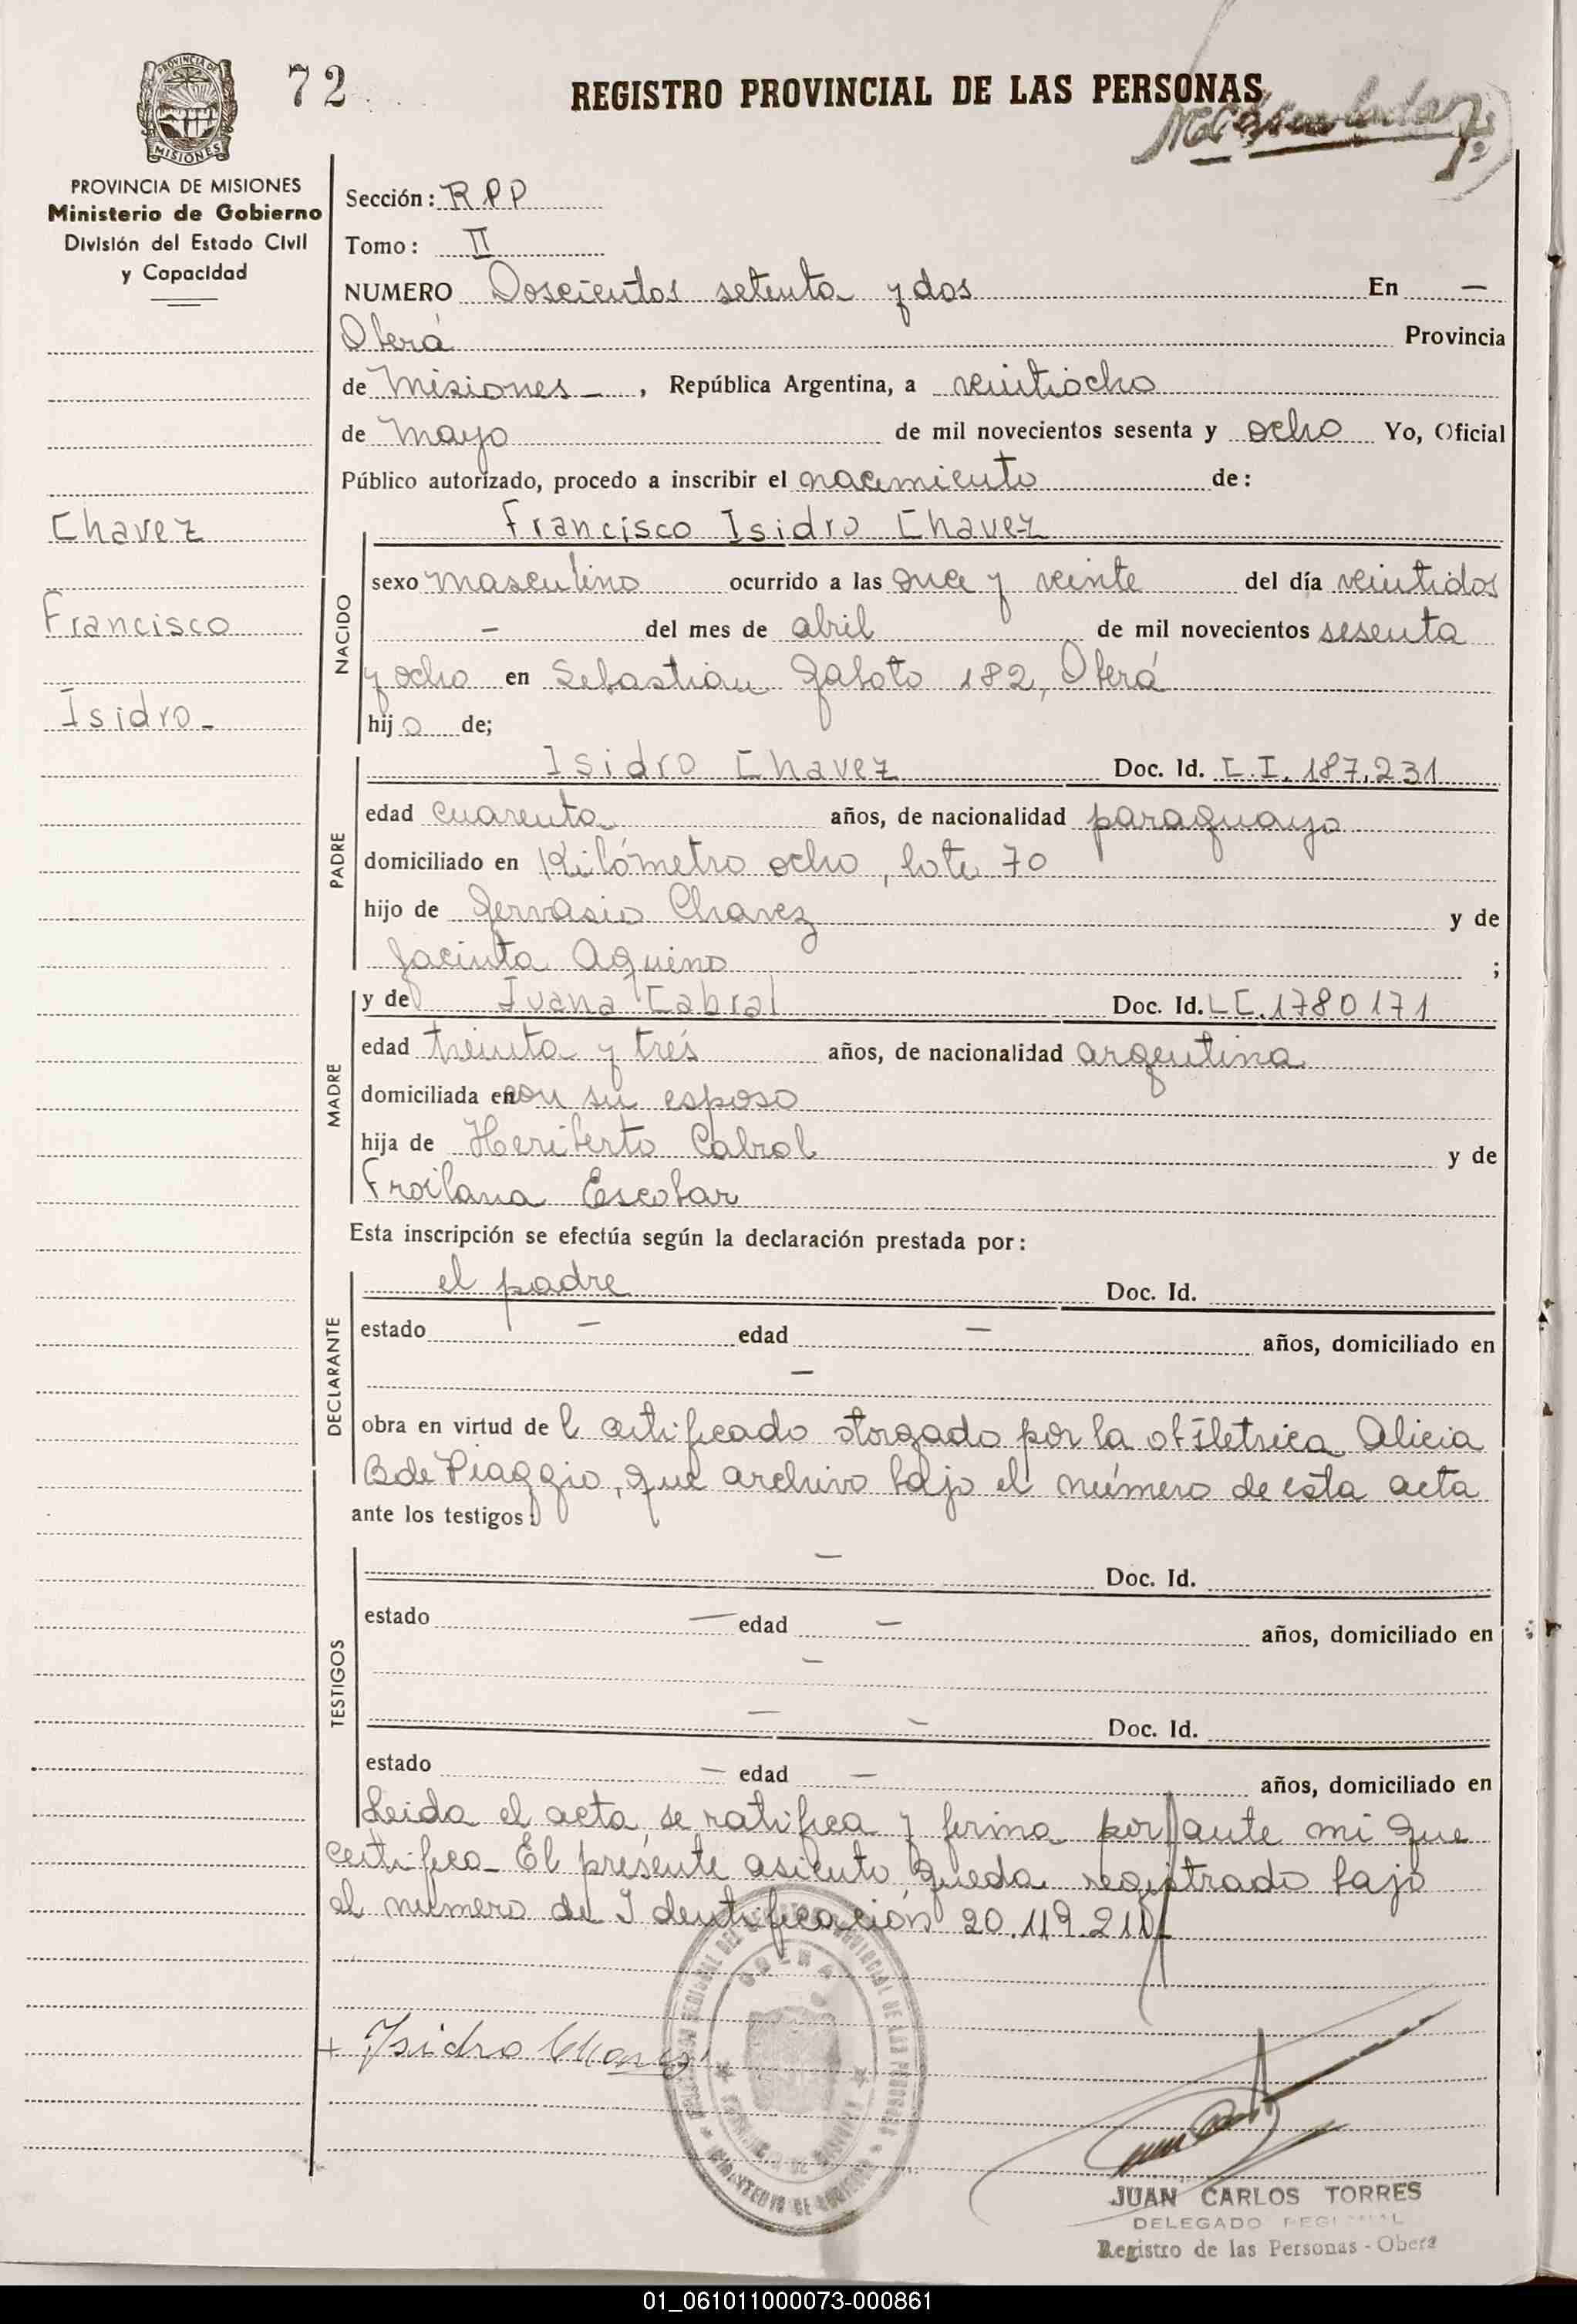 PROVINCIA DE
MISIONES
72
REGISTRO PROVINCIAL DE LAS PERSONAS
PROVINCIA DE MISIONES
Ministerio de Gobierno
División del Estado Civil
y Capacidad
Chavez
Francisco
Isidro -
Sección: R.P.P
Tomo: II
NUMERO Doscientos setenta y dos En —
Oberá Provincia
de Misiones —, República Argentina, a veintiocho
de Mayo de mil novecientos sesenta y ocho Yo, Oficial
Público autorizado, procedo a inscribir el nacimiento de:
Francisco Isidro Chavez
NACIDO
sexo masculino ocurrido a las once y veinte del día veintidos
— del mes de abril de mil novecientos sesenta
y ocho en Sebastián Gaboto 182, Oberá
hijo de;
PADRE
Isidro Chavez Doc. Id. C.I. 187.231
edad cuarenta años, de nacionalidad paraguayo
domiciliado en Kilómetro ocho, lote 70
hijo de Gervasio Chavez y de
Jacinta Aquino ;
MADRE
y de Juana Cabral Doc. Id. L.C. 1780171
edad treinta y trés años, de nacionalidad argentina
domiciliada en con su esposo
hija de Heriberto Cabral y de
Froilana Escobar
Esta inscripción se efectúa según la declaración prestada por:
DECLARANTE
el padre Doc. Id.
estado — edad — años, domiciliado en
—
obra en virtud de l certificado otorgado por la obstetrica Alicia
B de Piaggio, que archivo bajo el número de esta acta
ante los testigos:
TESTIGOS
— Doc. Id.
estado — edad — años, domiciliado en
—
— — Doc. Id.
estado — edad — años, domiciliado en
Leida el acta, se ratifica y firma por ante mi que
certifico - El presente asiento queda registrado bajo
el número de Identificación 20.119.211
+ Isidro Chavez
OBERA
JUAN CARLOS TORRES
DELEGADO REGIONAL
Registro de las Personas - Obera
01_061011000073-000861